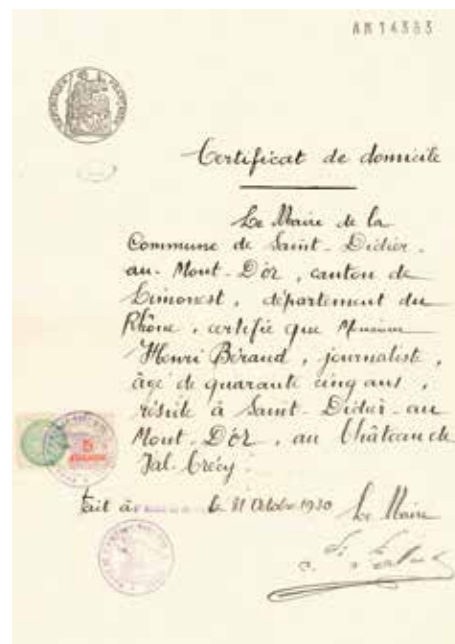 AM14383
RÉPUBLIQUE FRANÇAISE
Certificat de domicile
Le Maire de la
Commune de Saint-Didier-
au-Mont-D'Or, canton de
Limonest, département du
Rhône, certifie que Monsieur
Henri Béraud, journaliste,
âgé de quarante cinq ans,
réside à Saint-Didier-au
Mont-D'Or, au Château de
Val-Crécy.
5
Fait à le 31 Octobre 1930
Le Maire